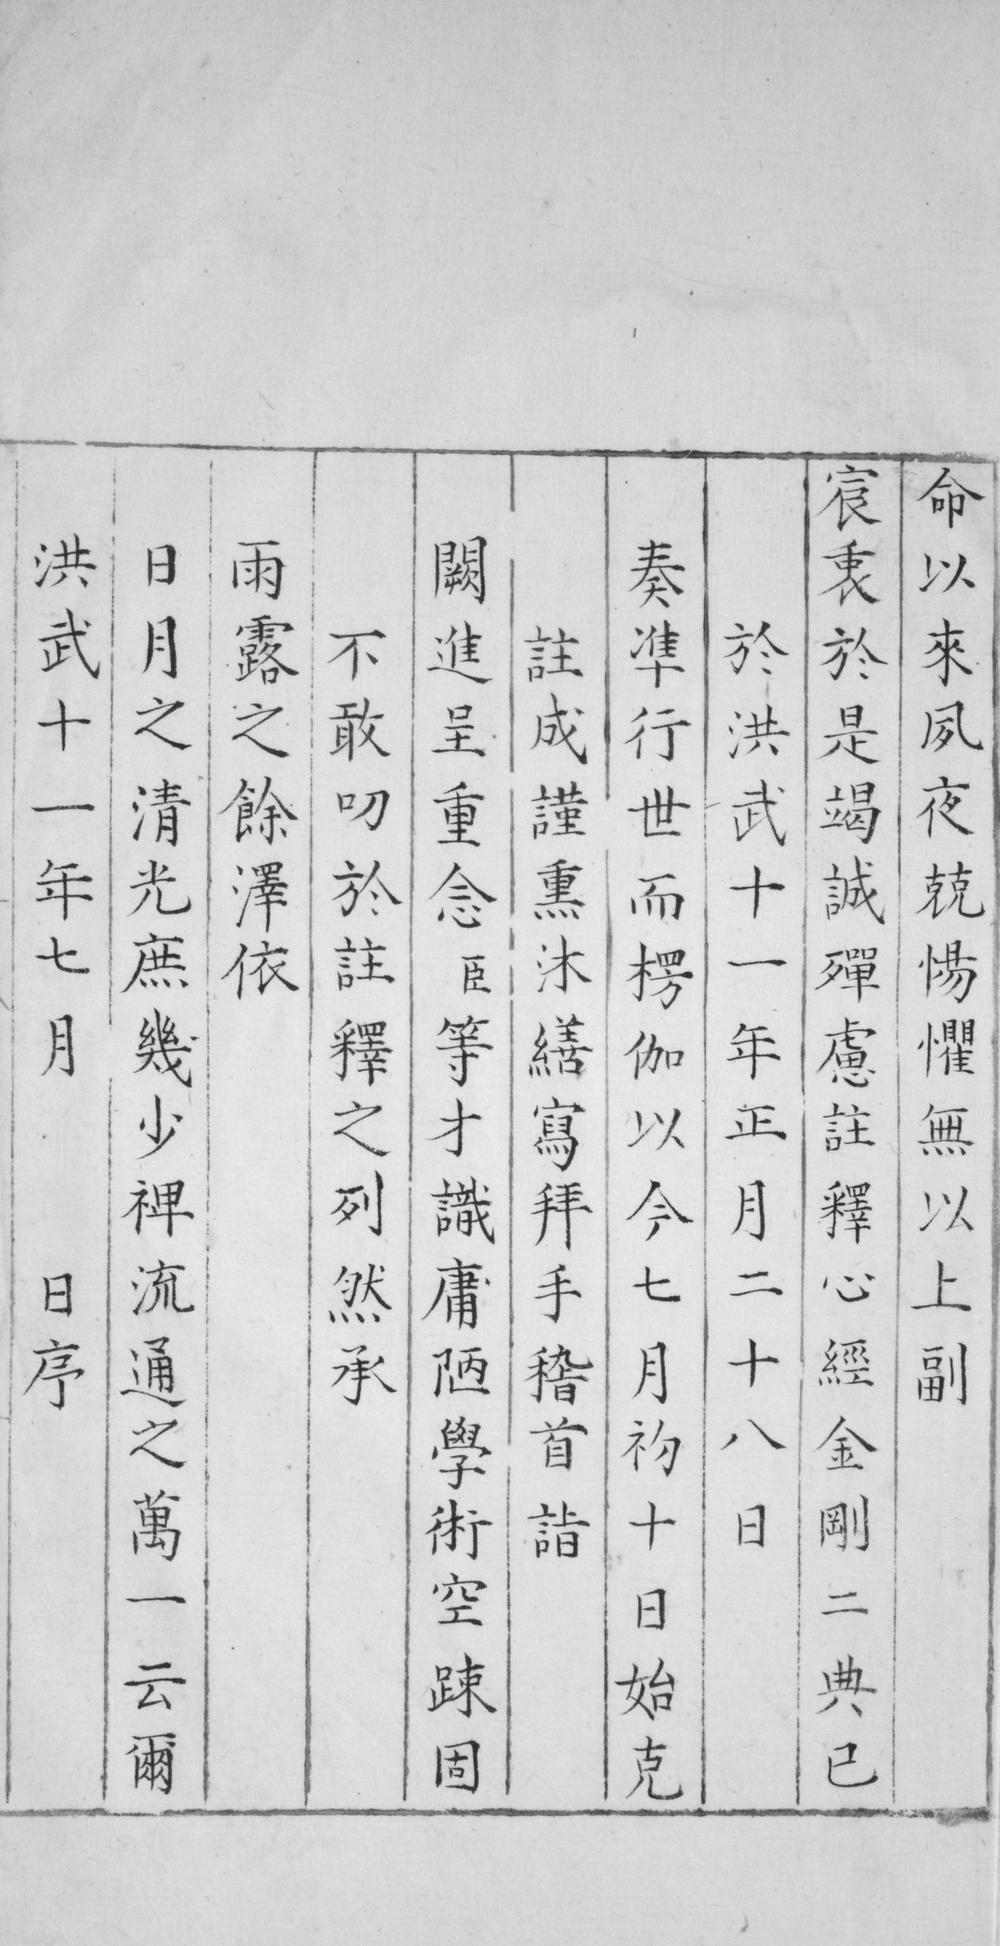 命以來夙夜兢惕懼無以上副
宸衷於是竭誠殫慮註釋心經金剛二典已
於洪武十一年正月二十八日
奏準行世而楞伽以今七月初十日始克
註成謹熏沐繕寫拜手稽首詣
闕進呈重念臣等才識庸陋學術空踈固
不敢叨於註釋之列然承
雨露之餘澤依
日月之清光庶幾少裨流通之萬一云爾
洪武十一年七月　日序